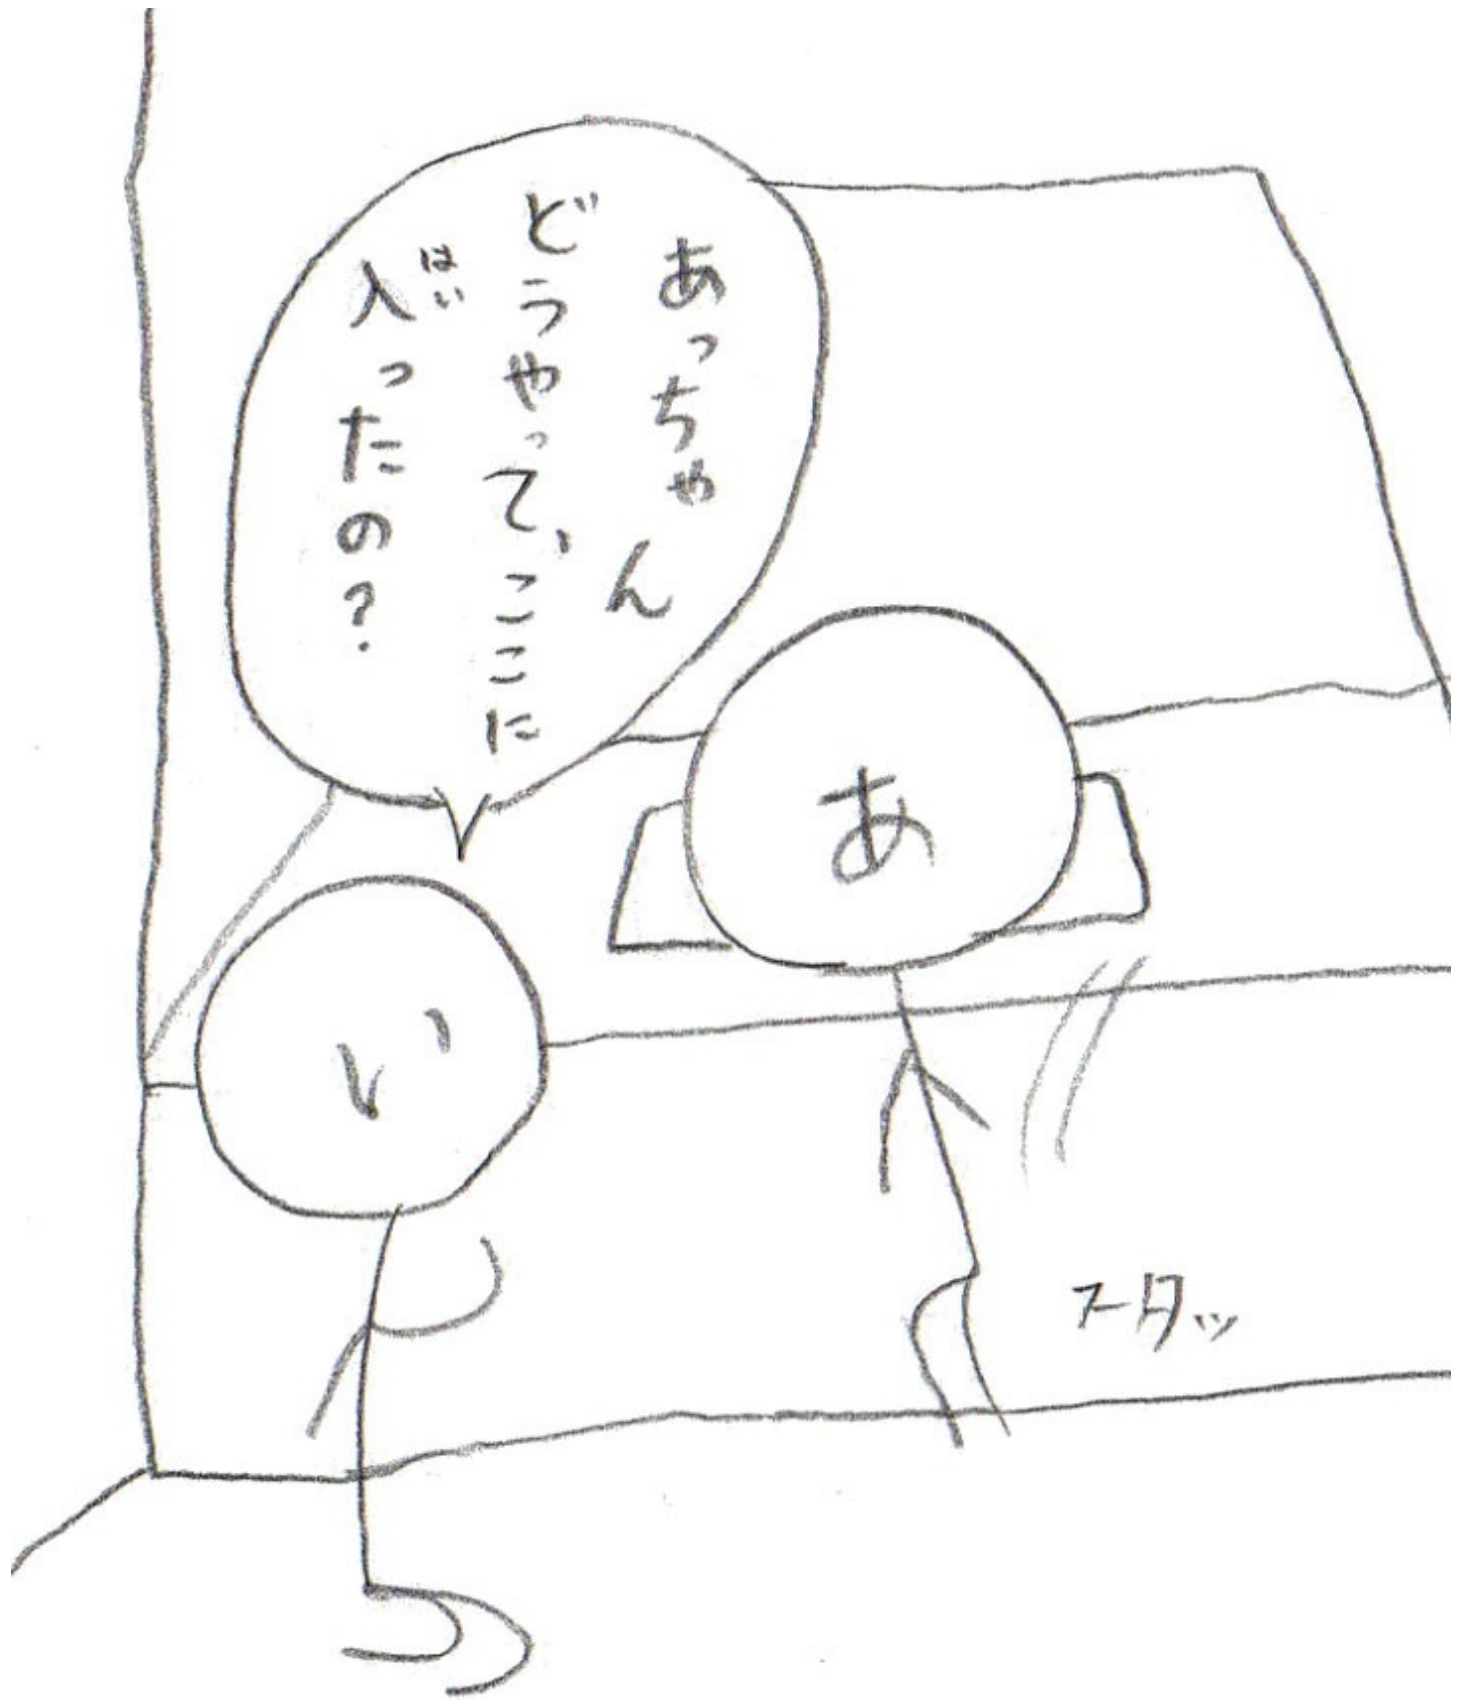 あっちゃん
どうやって、ここに
入ったの?
はい
あ
い
スタッ